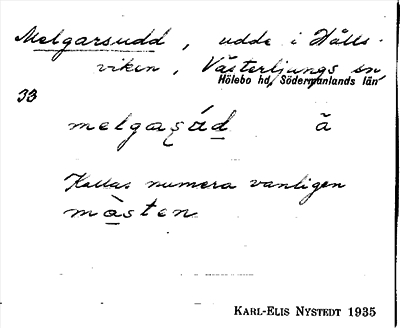 Melgarsudd, udde i Hålls-
viken, Västerljungs sn
Hölebo hd, Södermanlands län
33
melgaʂúd ã
Kallas numera vanligen
màsten
KARL-ELIS NYSTEDT 1935